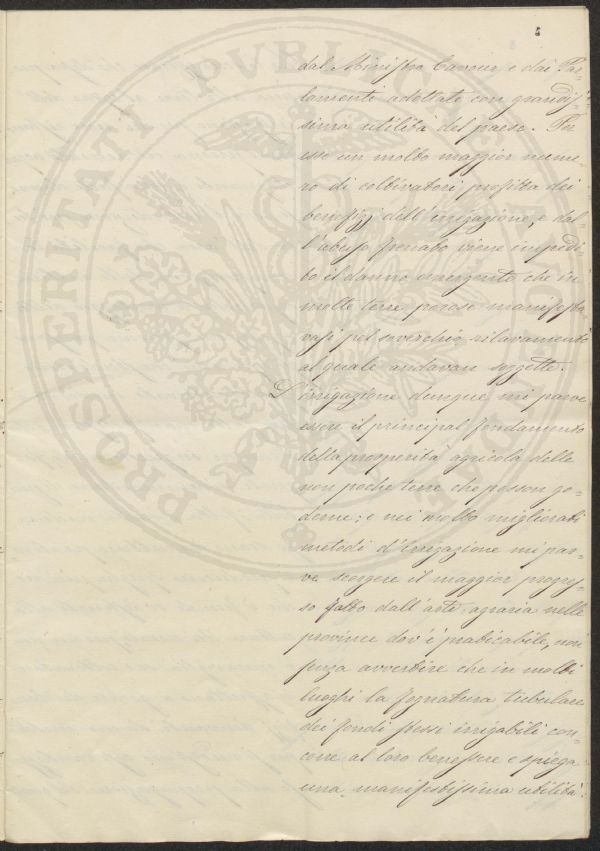 5
dal Ministro Cavour e dai Par-
lamenti adottate con grandis-
sima utilità del paese. Per
esse un molto maggior nume
ro di coltivatori profitta dei
benefizj dell'irrigazione, e dal-
l'abuso frenato viene impedi-
to il danno emergente che in
molte terre porose manifesta
vasi pel soverchio rilavamento
al quale andavan soggette.
L'irrigazione dunque mi parve
essere il principal fondamento
della prosperità agricola delle
non poche terre che posson go-
derne; e nei molto migliorati
metodi d'Irrigazione mi par-
ve scorgere il maggior progres-
so fatto dall'arte agraria nelle
province dov'è praticabile, non
senza avvertire che in molti
luoghi la fognatura tubulare
dei fondi stessi irrigabili con-
corre al loro benessere e spiega
una manifestissima utilità.
PROSPERITATI PVBLICAE AVGENDAE